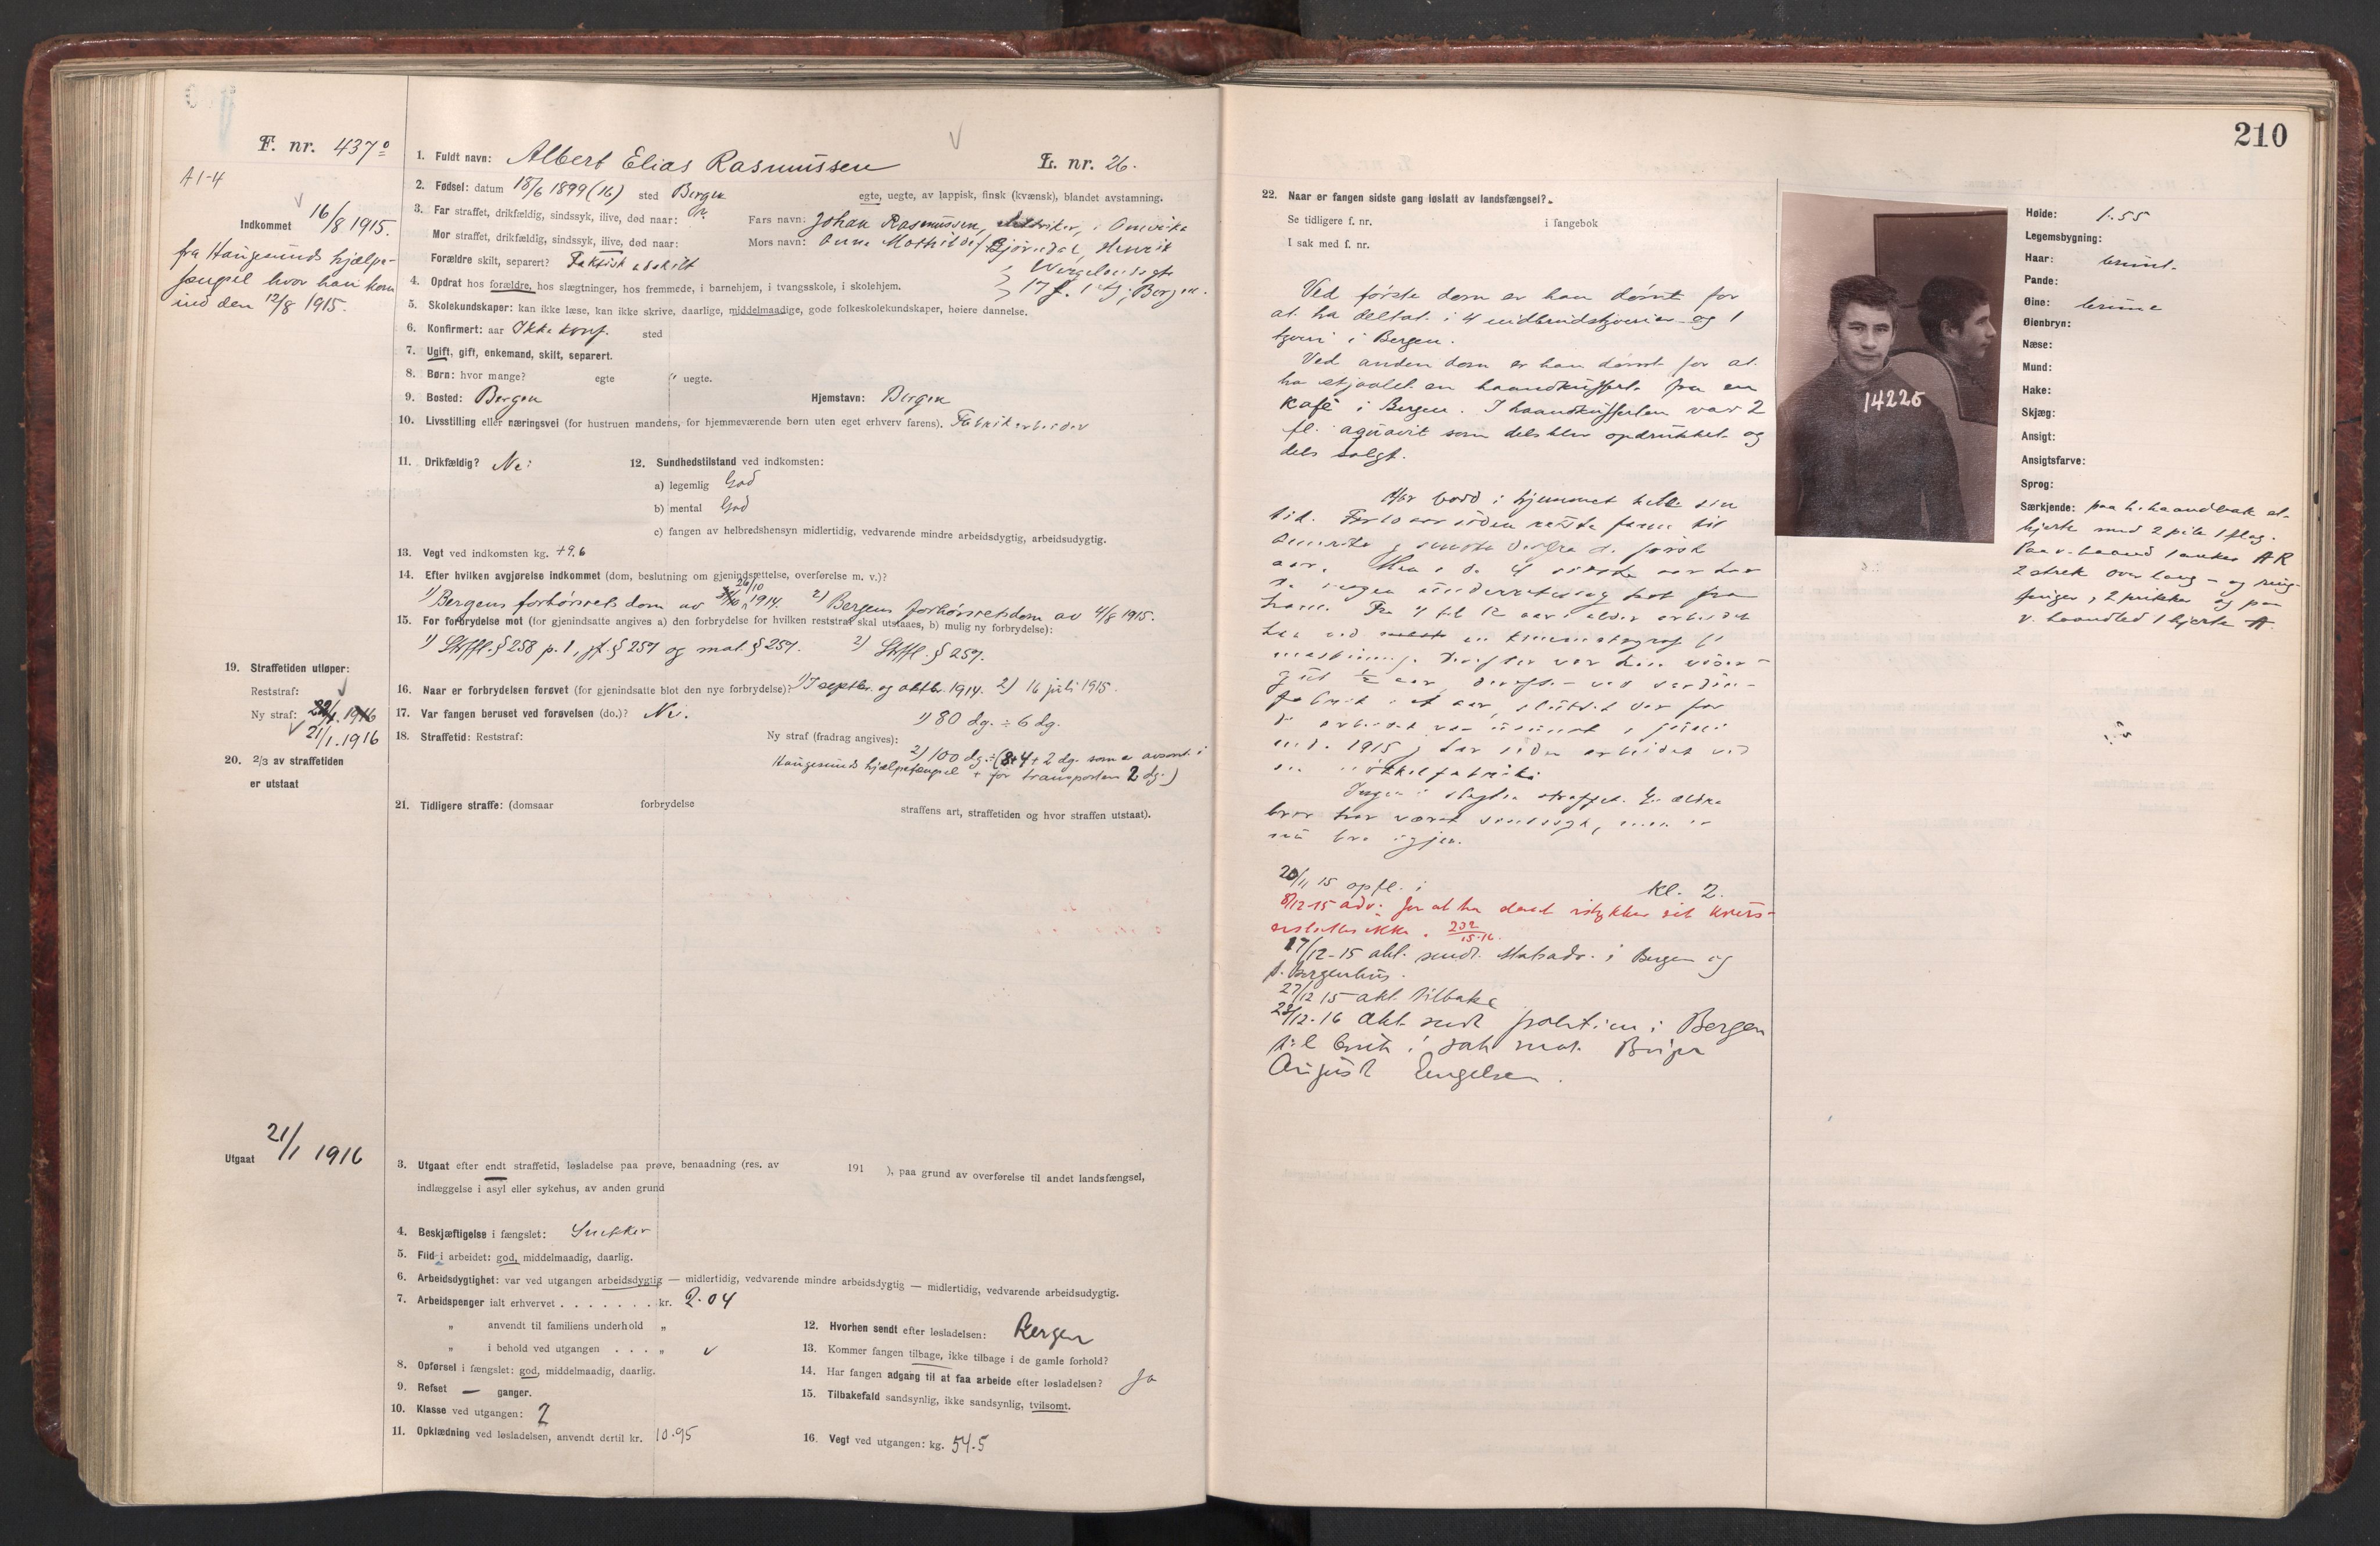 F. nr. 437º
A 1-4
Indkommet 16/8 1915.
fra Haugesunds hjælpe-
fængsel hvor han kom
ind den 12/8 1915.
1. Fuldt navn: Albert Elias Rasmussen
L. nr. 26.
2. Fødsel: datum 18/6 1899 (16) sted Bergen
egte, uegte, av lappisk, finsk (kvænsk), blandet avstamning.
3. Far straffet, drikfældig, sindssyk, ilive, død naar:
Fars navn: Johan Rasmussen, i Amerika
Mor straffet, drikfældig, sindssyk, ilive, død naar:
Mors navn: Anna Mathilde f. Bjørndal, Henrik
Forældre skilt, separert? Faktisk adskilt
Wergelandsgt
17 f. 1 etg. Bergen.
4. Opdrat hos forældre, hos slægtninger, hos fremmede, i barnehjem, i tvangsskole, i skolehjem.
5. Skolekundskaper: kan ikke læse, kan ikke skrive, daarlige, middelmaadige, gode folkeskolekundskaper, høiere dannelse.
6. Konfirmert: aar Ikke konf. sted
7. Ugift, gift, enkemand, skilt, separert.
8. Børn: hvor mange? egte uegte.
9. Bosted: Bergen Hjemstavn: Bergen
10. Livsstilling eller næringsvei (for hustruen mandens, for hjemmeværende børn uten eget erhverv farens). Fabrikarbeider
11. Drikfældig? Nei
12. Sundhetstilstand ved indkomsten:
a) legemlig God
b) mental God
c) fangen av helbredshensyn midlertidig, vedvarende mindre arbeidsdygtig, arbeidsudygtig.
13. Vegt ved indkomsten kg. 49.6
14. Efter hvilken avgjørelse indkommet (dom, beslutning om gjenindsættelse, overførelse m. v.)?
26/10
1) Bergens forhørsrets dom av 1914. 2) Bergens forhørsretsdom av 4/8 1915.
15. For forbrydelse mot (for gjenindsatte angives a) den forbrydelse for hvilken reststraf skal utstaaes, b) mulig ny forbrydelse):
1) Strffl. § 258 p. 1, jf. § 257 og mot § 257. 2) Strffl. § 257.
16. Naar er forbrydelsen forøvet (for gjenindsatte blot den nye forbrydelse)? 1) I septbr. og oktbr. 1914. 2) 16 juli 1915.
17. Var fangen beruset ved forøvelsen (do.)? Nei.
1) 80 dg. ÷ 6 dg.
18. Straffetid: Reststraf: Ny straf (fradrag angives):
2) 100 dg. ÷ (8+4+2 dg. som er avsont i
Haugesunds hjælpefængsel + for transporten 2 dg.)
19. Straffetiden utløper:
Reststraf:
Ny straf: 1916
21/1. 1916
20. 2/3 av straffetiden
er utstaat
21. Tidligere straffe: (domsaar forbrydelse straffens art, straffetiden og hvor straffen utstaat).
Utgaat 21/1 1916
3. Utgaat efter endt straffetid, løsladelse paa prøve, benaadning (res. av 191 ), paa grund av overførelse til andet landsfængsel,
indlæggelse i asyl eller sykehus, av anden grund
4. Beskjæftigelse i fængslet: Snekker
5. Flid i arbeidet: god, middelmaadig, daarlig.
6. Arbeidsdygtighet: var ved utgangen arbeidsdygtig — midlertidig, vedvarende mindre arbeidsdygtig — midlertidig, vedvarende arbeidsudygtig.
7. Arbeidspenger ialt erhvervet . . . . . . . kr. 2.04
„ anvendt til familiens underhold „
„ i behold ved utgangen . . . „
8. Opførsel i fængslet: god, middelmaadig, daarlig.
9. Refset — ganger.
10. Klasse ved utgangen: 2
11. Opklædning ved løsladelsen, anvendt dertil kr. 10.95
12. Hvorhen sendt efter løsladelsen: Bergen
13. Kommer fangen tilbage, ikke tilbage i de gamle forhold?
14. Har fangen adgang til at faa arbeide efter løsladelsen? Ja
15. Tilbakefald sandsynlig, ikke sandsynlig, tvilsomt.
16. Vegt ved utgangen: kg. 54.5
210
22. Naar er fangen sidste gang løslatt av landsfængsel?
Se tidligere f. nr. i fangebok
I sak med f. nr.
Ved første dom er han dømt for
at ha deltat i 4 indbrudstyverier og 1
tyveri i Bergen.
Ved anden dom er han dømt for at
ha stjaalet en haandkuffert fra en
Kafé i Bergen. I haandkufferten var 2
fl. aquavit som dels blev opdrukket og
dels solgt.
Har bodd i hjemmet hele sin
tid. For 10 aar siden reiste faren til
Amerika, sendte derfra de første
aar. Men i de 4 sidste aar har
de ingen underretning hat fra
ham. Fra 9 til 12 aars alder arbeidet
han ved en kinematograf
gut 1/2 aar, derefter ved
fabrik i et aar, sluttet der for
1915, har siden arbeidet ved
Ingen i slegten straffet. En ældre
bror har været sindssyk, men er
nu bra igjen.
20/11 15 opfl. i kl. 2.
8/12-15 adv. for at ha istykker sit
erstattes ikke. 232/15-16.
17/12-15 akt. sendt Statsadv. i Bergen og
s. Bergenhus.
27/12 15 akt. tilbake
28/12-16 akt. sendt politiet i Bergen
til bruk i sak mot Birger
August Engelsen.
14225
Høide: 1.55
Legemsbygning:
Haar: brunt.
Pande:
Øine: brune
Øienbryn:
Næse:
Mund:
Hake:
Skjæg:
Ansigt:
Ansigtsfarve:
Sprog:
Særkjende: paa h. haandbak et
hjerte med 2 pile 1 flag.
Paa v. haand 1 anker AR
2 strek over lang- og ring-
finger, 2 prikker og paa
v. haandled 1 hjerte A.